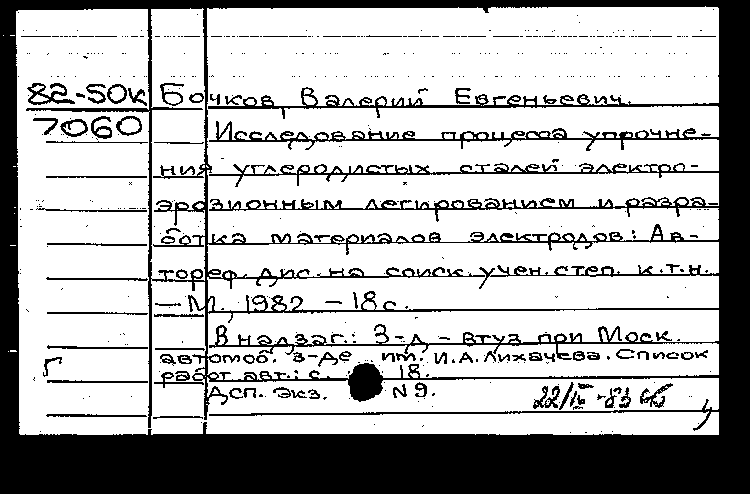 82-50к Бочков, Валерий Евгеньевич.
7060 Исследование процесса упрочне-
ния углеродистых сталей электро-
эрозионным легированием и разра-
ботка материалов электродов: Ав-
тореф. дис. на соиск. учен. степ. к.т.н.
— М., 1982 - 18 с.
В надзаг.: З-д - втуз при Моск.
автомоб. з-де им. И.А. Лихачева. Список
работ авт.: с. 18.
ДСП. Экз. N 9.
22/IV-83